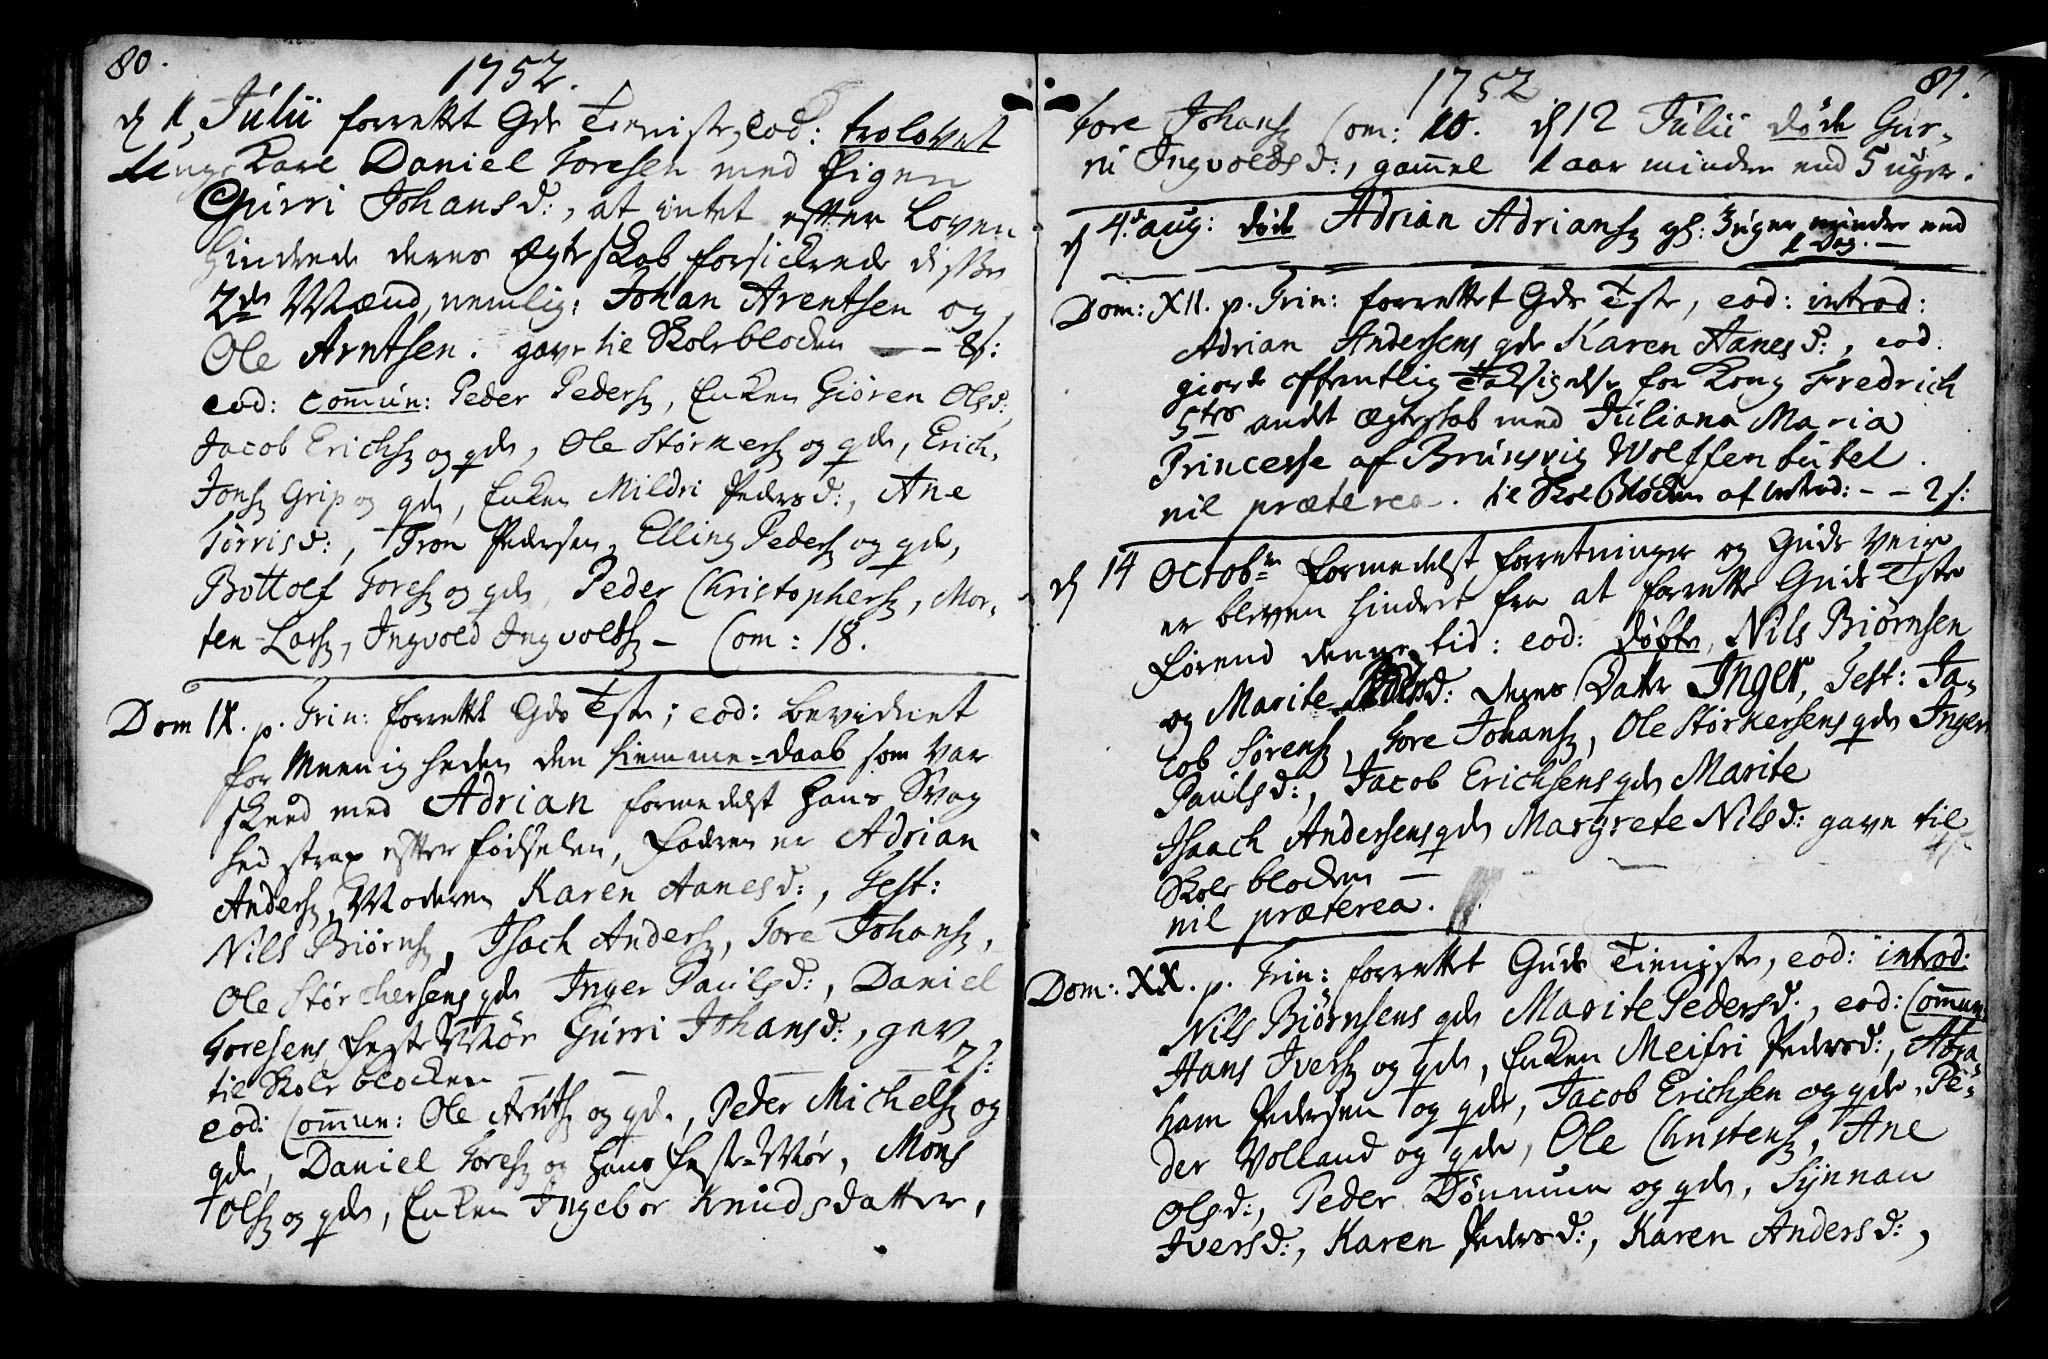 80.
1752.
d 11, Julii forrettet Gds Tieniste, eod: trolovet
Ungs Karl Daniel Toresen med Pigen
Gurri Johansd:, at intet efter Loven
hindrede deres Ægteskab forsickrede disse
2de Mænd, nemlig: Johan Arentsen og
Ole Arntsen. gave til Skoleblocken — - 8s:
eod: commun: Peder Peders., Enken Giøren Olsd:
Jacob Erichs. og qde, Ole Størkers. og qde, Erich
Jons. Grip og qde, Enken Mildri Pedersd:, Ane
Tørrisd:, Tron Pedersen, Elling Peders. og qde,
Bottolf Tores. og qde, Peder Christophers., Mor-
ten Lars., Ingvold Ingvolds. — Com: 18.
Dom IX. p. Trin: forrettet Gds Tste; eod: bevidnet
for Meenigheden den hiemme-daab som var
skeed med Adrian formedelst hans Svag
hed strax efter fødselen, Faderen er Adrian
Anders., Moderen Karen Aanesd:, Test:
Nils Biørns., Isach Anders., Tore Johans.,
Ole Størchersens qde Inger Paulsd:, Daniel
Toresens Feste-Mør Gurri Johansd:, gav
til Skoleblocken — — — — 2s:
eod: Commun: Ole Arnts. og qde., Peder Michels. og
qde, Daniel Tores. og hans Feste-Mør, Mons
Ols. og qde, Enken Ingebor Knudsdatter,
1752
81.
Tore Johans. Com: 10. d 12 Julii døde Gur-
ri Ingvoldsd:, gammel 1 aar minder end 5 uger.
d 4de aug: døde Adrian Adrians. gl: 3 uger minder end
1 Dag. —
Dom: XII. p. Trin: forrettet Gds Tste, eod: introd:
Adrian Andersens qde Karen Aanesd:, eod.
giorde offentlig Taksigelse for Kong Fredrich
5tes andet Ægteskab med Juliana Maria
Princesse af Brunsvig Wolffenbutel.
nil præterea. til Skoleblocken af introd: - - 2s:
d 14 Octobr formedelst forretninger og Guds Veir
er bleven hindret fra at forrette Guds Tste
førend denne tid: eod: døbte Nils Biørnsen
og Marite Pedersd: deres Datter Inger, Test: Ja-
cob Sørens., Tore Johans., Ole Størkersens qde Inger
Paulsd:, Jacob Erichsens qde Marite
Isaach Andersens qde Margrete Nilsd: gave til
Skoleblocken — — — 4s.
nil præterea.
Dom: XX. p. Trin: forrettet Guds Tieniste, eod: introd:
Nils Biørnsens qde Marite Pedersd:, eod: Commun
Hans Ivers. og qde, Enken Meifri Pedersd:, Abra
ham Pedersen og qde, Jacob Erichsen og qde, Pe-
der Volland og qde, Ole Christens., Ane
Olsd:, Peder Dønnum og qde, Synnau
Iversd:, Karen Pedersd:, Karen Andersd:,